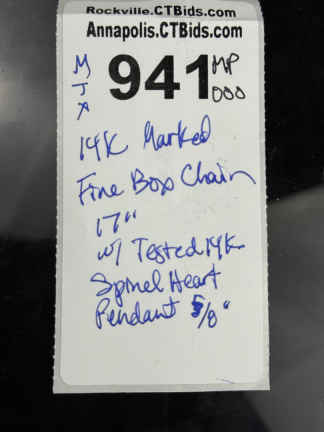 Rockville.CTBids.com
Annapolis.CTBids.com
MJA 941 MP 000
14K Marked
Fine Box Chain
17"
w/ Tested 14K
Spinel Heart
Pendant 5/8"